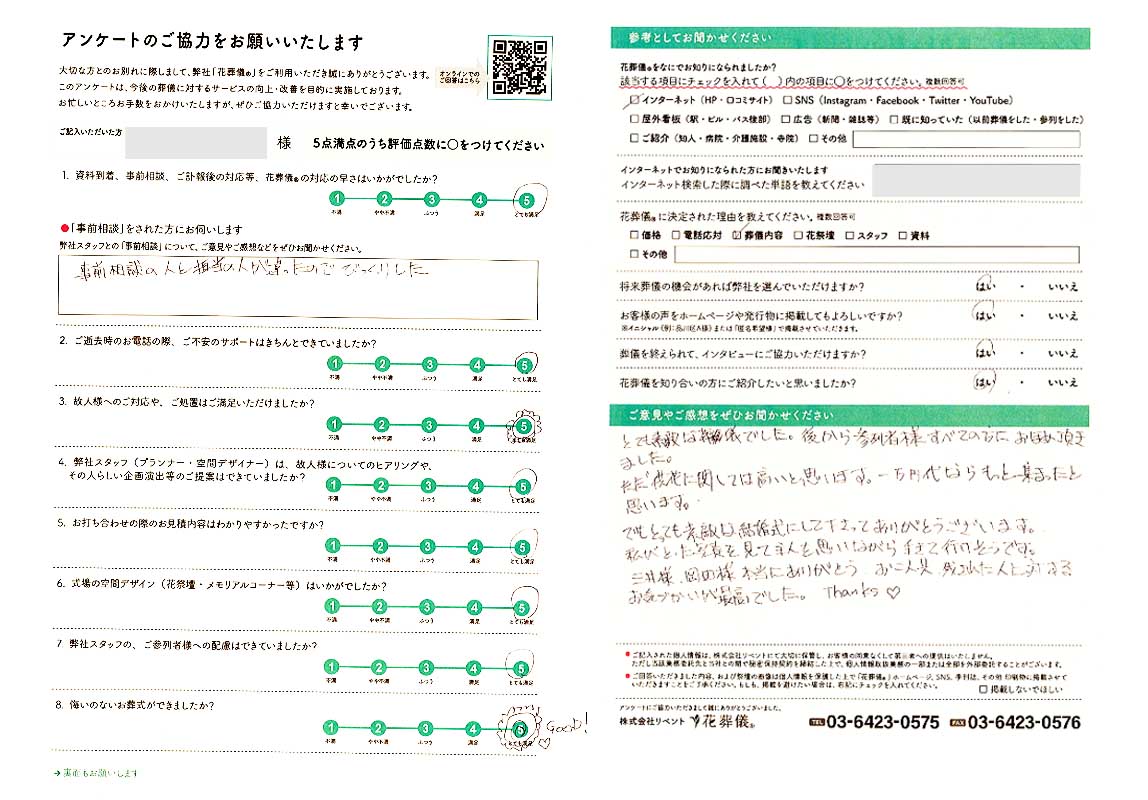 アンケートのご協力をお願いいたします
大切な方とのお別れに際しまして、弊社「花葬儀®」をご利用いただき誠にありがとうございます。
このアンケートは、今後の葬儀に対するサービスの向上・改善を目的に実施しております。
お忙しいところお手数をおかけいたしますが、ぜひご協力いただけますと幸いでございます。
オンラインでの
ご回答はこちら
ご記入いただいた方
様 5点満点のうち評価点数に〇をつけてください
1. 資料到着、事前相談、ご訃報後の対応等、花葬儀®の対応の早さはいかがでしたか?
1 2 3 4 5
不満 やや不満 ふつう 満足 とても満足
●「事前相談」をされた方にお伺いします
弊社スタッフとの「事前相談」について、ご意見やご感想などをぜひお聞かせください。
事前相談の人と担当の人が違ったのでびっくりした
2. ご逝去時のお電話の際、ご不安のサポートはきちんとできていましたか?
1 2 3 4 5
不満 やや不満 ふつう 満足 とても満足
3. 故人様へのご対応や、ご処置はご満足いただけましたか?
1 2 3 4 5
不満 やや不満 ふつう 満足 とても満足
4. 弊社スタッフ(プランナー・空間デザイナー)は、故人様についてのヒアリングや、
その人らしい企画演出等のご提案はできていましたか?
1 2 3 4 5
不満 やや不満 ふつう 満足 とても満足
5. お打ち合わせの際のお見積内容はわかりやすかったですか?
1 2 3 4 5
不満 やや不満 ふつう 満足 とても満足
6. 式場の空間デザイン(花祭壇・メモリアルコーナー等)はいかがでしたか?
1 2 3 4 5
不満 やや不満 ふつう 満足 とても満足
7. 弊社スタッフの、ご参列者様への配慮はできていましたか?
1 2 3 4 5
不満 やや不満 ふつう 満足 とても満足
8. 悔いのないお葬式ができましたか?
1 2 3 4 5 Good!
不満 やや不満 ふつう 満足 とても満足 ♡
→裏面もお願いします
参考としてお聞かせください
花葬儀®をなにでお知りになられましたか?
該当する項目にチェックを入れて( )内の項目に〇をつけてください。複数回答可
☑インターネット(HP・口コミサイト) □SNS(Instagram・Facebook・Twitter・YouTube)
□屋外看板(駅・ビル・バス後部) □広告(新聞・雑誌等) □既に知っていた(以前葬儀をした・参列をした)
□ご紹介(知人・病院・介護施設・寺院) □その他
インターネットでお知りになられた方にお聞きいたします
インターネット検索した際に調べた単語を教えてください
花葬儀®に決定された理由を教えてください。複数回答可
□価格 □電話応対 ☑葬儀内容 □花祭壇 □スタッフ □資料
□その他
将来葬儀の機会があれば弊社を選んでいただけますか? はい ・ いいえ
お客様の声をホームページや発行物に掲載してもよろしいですか? はい ・ いいえ
※イニシャル(例:品川区A様)または「匿名希望様」で掲載させていただきます。
葬儀を終えられて、インタビューにご協力いただけますか? はい ・ いいえ
花葬儀を知り合いの方にご紹介したいと思いましたか? はい ・ いいえ
ご意見やご感想をぜひお聞かせください
とても素敵な葬儀でした。後から参列者様すべての方にお褒め頂き
ました。
ただ供花に関しては高いと思います。一万円代ならもっと集まったと
思います。
でもとても素敵な結婚式にして下さってありがとうございます。
私がとった写真を見て主人を思いながら生きて行けそうです。
三井様、岡田様本当にありがとう お二人共残された人に対する
お気づかいが最高でした。 Thanks ♡
●ご記入された個人情報は、株式会社リベントにて大切に保管し、お客様の同意なくして第三者への提供はいたしません。
ただし当該業務委託先と当社との間で秘密保持契約を締結した上で、個人情報取扱業務の一部または全部を外部委託することがございます。
●ご回答いただきました内容、および祭壇の画像は個人情報を保護した上で「花葬儀®」ホームページ、SNS、季刊誌、その他印刷物に掲載させて
いただきますことをご了承ください。もしも、掲載を避けたい場合は、右記にチェックを入れてください。 □掲載しないでほしい
アンケートにご協力いただきまして誠にありがとうございました。
株式会社リベント 花葬儀® TEL 03-6423-0575 FAX 03-6423-0576